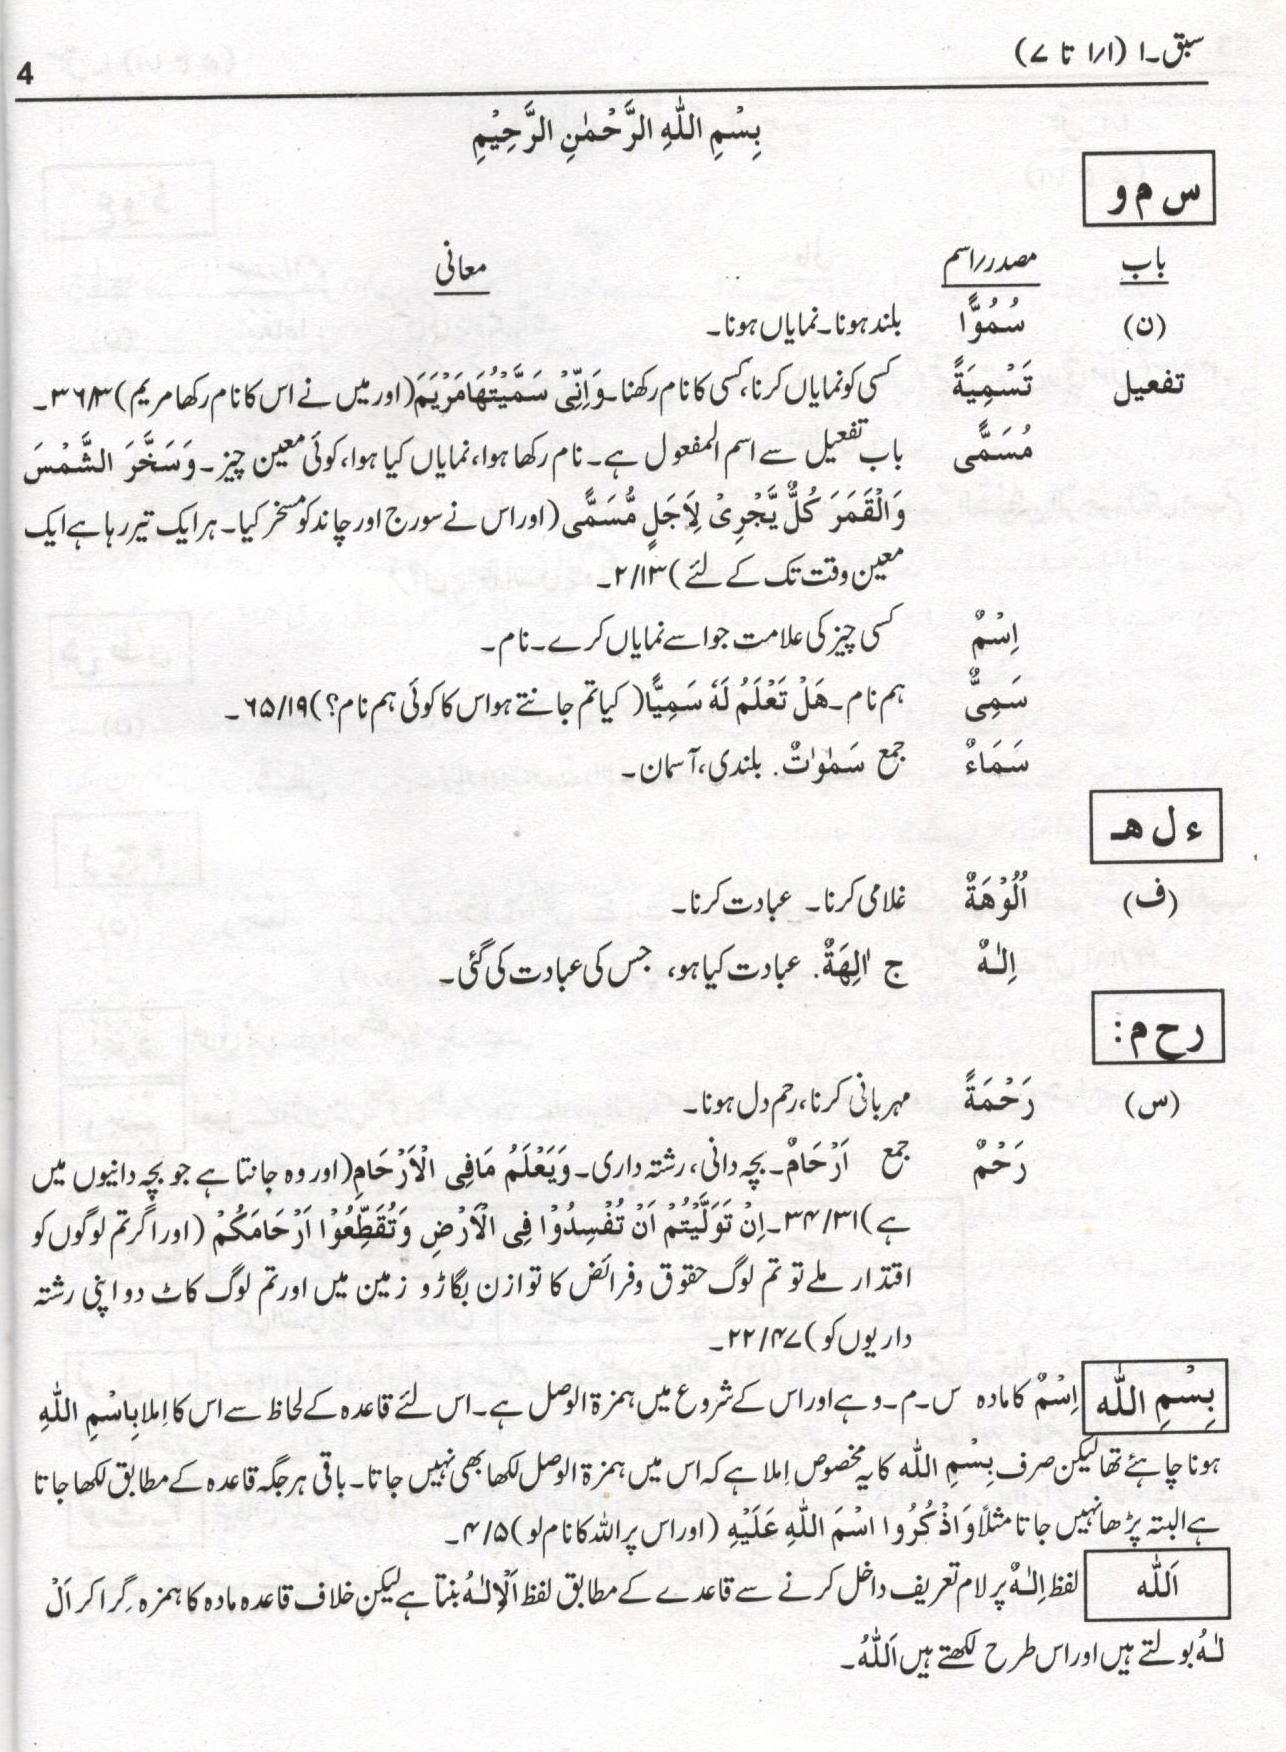 سبق۔۱ (۱/۱ تا ۷)
4
بِسْمِ اللّٰهِ الرَّحْمٰنِ الرَّحِيْمِ
س م و
باب مصدر/اسم معانی
(ن) سُمُوًّا بلند ہونا۔ نمایاں ہونا۔
تفعیل تَسْمِيَةً کسی کو نمایاں کرنا، کسی کا نام رکھنا۔ وَاِنِّىْ سَمَّيْتُهَا مَرْيَمَ (اور میں نے اس کا نام رکھا مریم) ۳۶/۳۔
مُسَمًّى باب تفعیل سے اسم المفعول ہے۔ نام رکھا ہوا، نمایاں کیا ہوا، کوئی معین چیز۔ وَسَخَّرَ الشَّمْسَ
وَالْقَمَرَ كُلٌّ يَّجْرِىْ لِاَجَلٍ مُّسَمًّى (اور اس نے سورج اور چاند کو مسخر کیا۔ ہر ایک تیر رہا ہے ایک
معین وقت تک کے لئے) ۲/۱۳۔
اِسْمٌ کسی چیز کی علامت جو اسے نمایاں کرے۔ نام۔
سَمِيٌّ ہم نام۔ هَلْ تَعْلَمُ لَهٗ سَمِيًّا (کیا تم جانتے ہو اس کا کوئی ہم نام؟) ۶۵/۱۹۔
سَمَاءٌ جمع سَمٰوٰتٌ. بلندی، آسمان۔
ء ل ھ
(ف) اُلُوْهَةٌ غلامی کرنا۔ عبادت کرنا۔
اِلٰهٌ ج اٰلِهَةٌ. عبادت کیا ہو، جس کی عبادت کی گئی۔
ر ح م:
(س) رَحْمَةً مہربانی کرنا، رحم دل ہونا۔
رَحْمٌ جمع اَرْحَامٌ۔ بچہ دانی، رشتہ داری۔ وَيَعْلَمُ مَا فِى الْاَرْحَامِ (اور وہ جانتا ہے جو بچہ دانیوں میں
ہے) ۳۴/۳۱۔ اِنْ تَوَلَّيْتُمْ اَنْ تُفْسِدُوْا فِى الْاَرْضِ وَتُقَطِّعُوْا اَرْحَامَكُمْ (اور اگر تم لوگوں کو
اقتدار ملے تو تم لوگ حقوق و فرائض کا توازن بگاڑو زمین میں اور تم لوگ کاٹ دو اپنی رشتہ
داریوں کو) ۲۲/۴۷۔
بِسْمِ اللّٰه اِسْمٌ کا مادہ س۔م۔و ہے اور اس کے شروع میں ہمزۃ الوصل ہے۔ اس لئے قاعدہ کے لحاظ سے اس کا اِملا بِاسْمِ اللّٰهِ
ہونا چاہئے تھا لیکن صرف بِسْمِ اللّٰه کا یہ مخصوص اِملا ہے کہ اس میں ہمزۃ الوصل لکھا بھی نہیں جاتا۔ باقی ہر جگہ قاعدہ کے مطابق لکھا جاتا
ہے البتہ پڑھا نہیں جاتا مثلًا وَاذْكُرُوا اسْمَ اللّٰهِ عَلَيْهِ (اور اس پر اللہ کا نام لو) ۴/۵۔
اَللّٰه لفظ اِلٰهٌ پر لام تعریف داخل کرنے سے قاعدے کے مطابق لفظ اَلْاِلٰهُ بنتا ہے لیکن خلاف قاعدہ مادہ کا ہمزہ گرا کر اَلْ
لٰهُ بولتے ہیں اور اس طرح لکھتے ہیں اَللّٰهُ۔